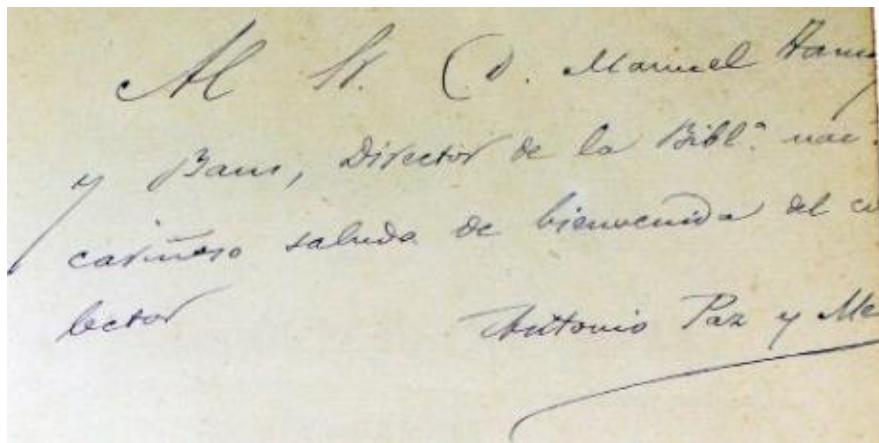 Al Sr. D. Manuel Tam
y Baus, Director de la Bibl.ª nac.
cariñoso saludo de bienvenida del co
lector
Antonio Paz y Me